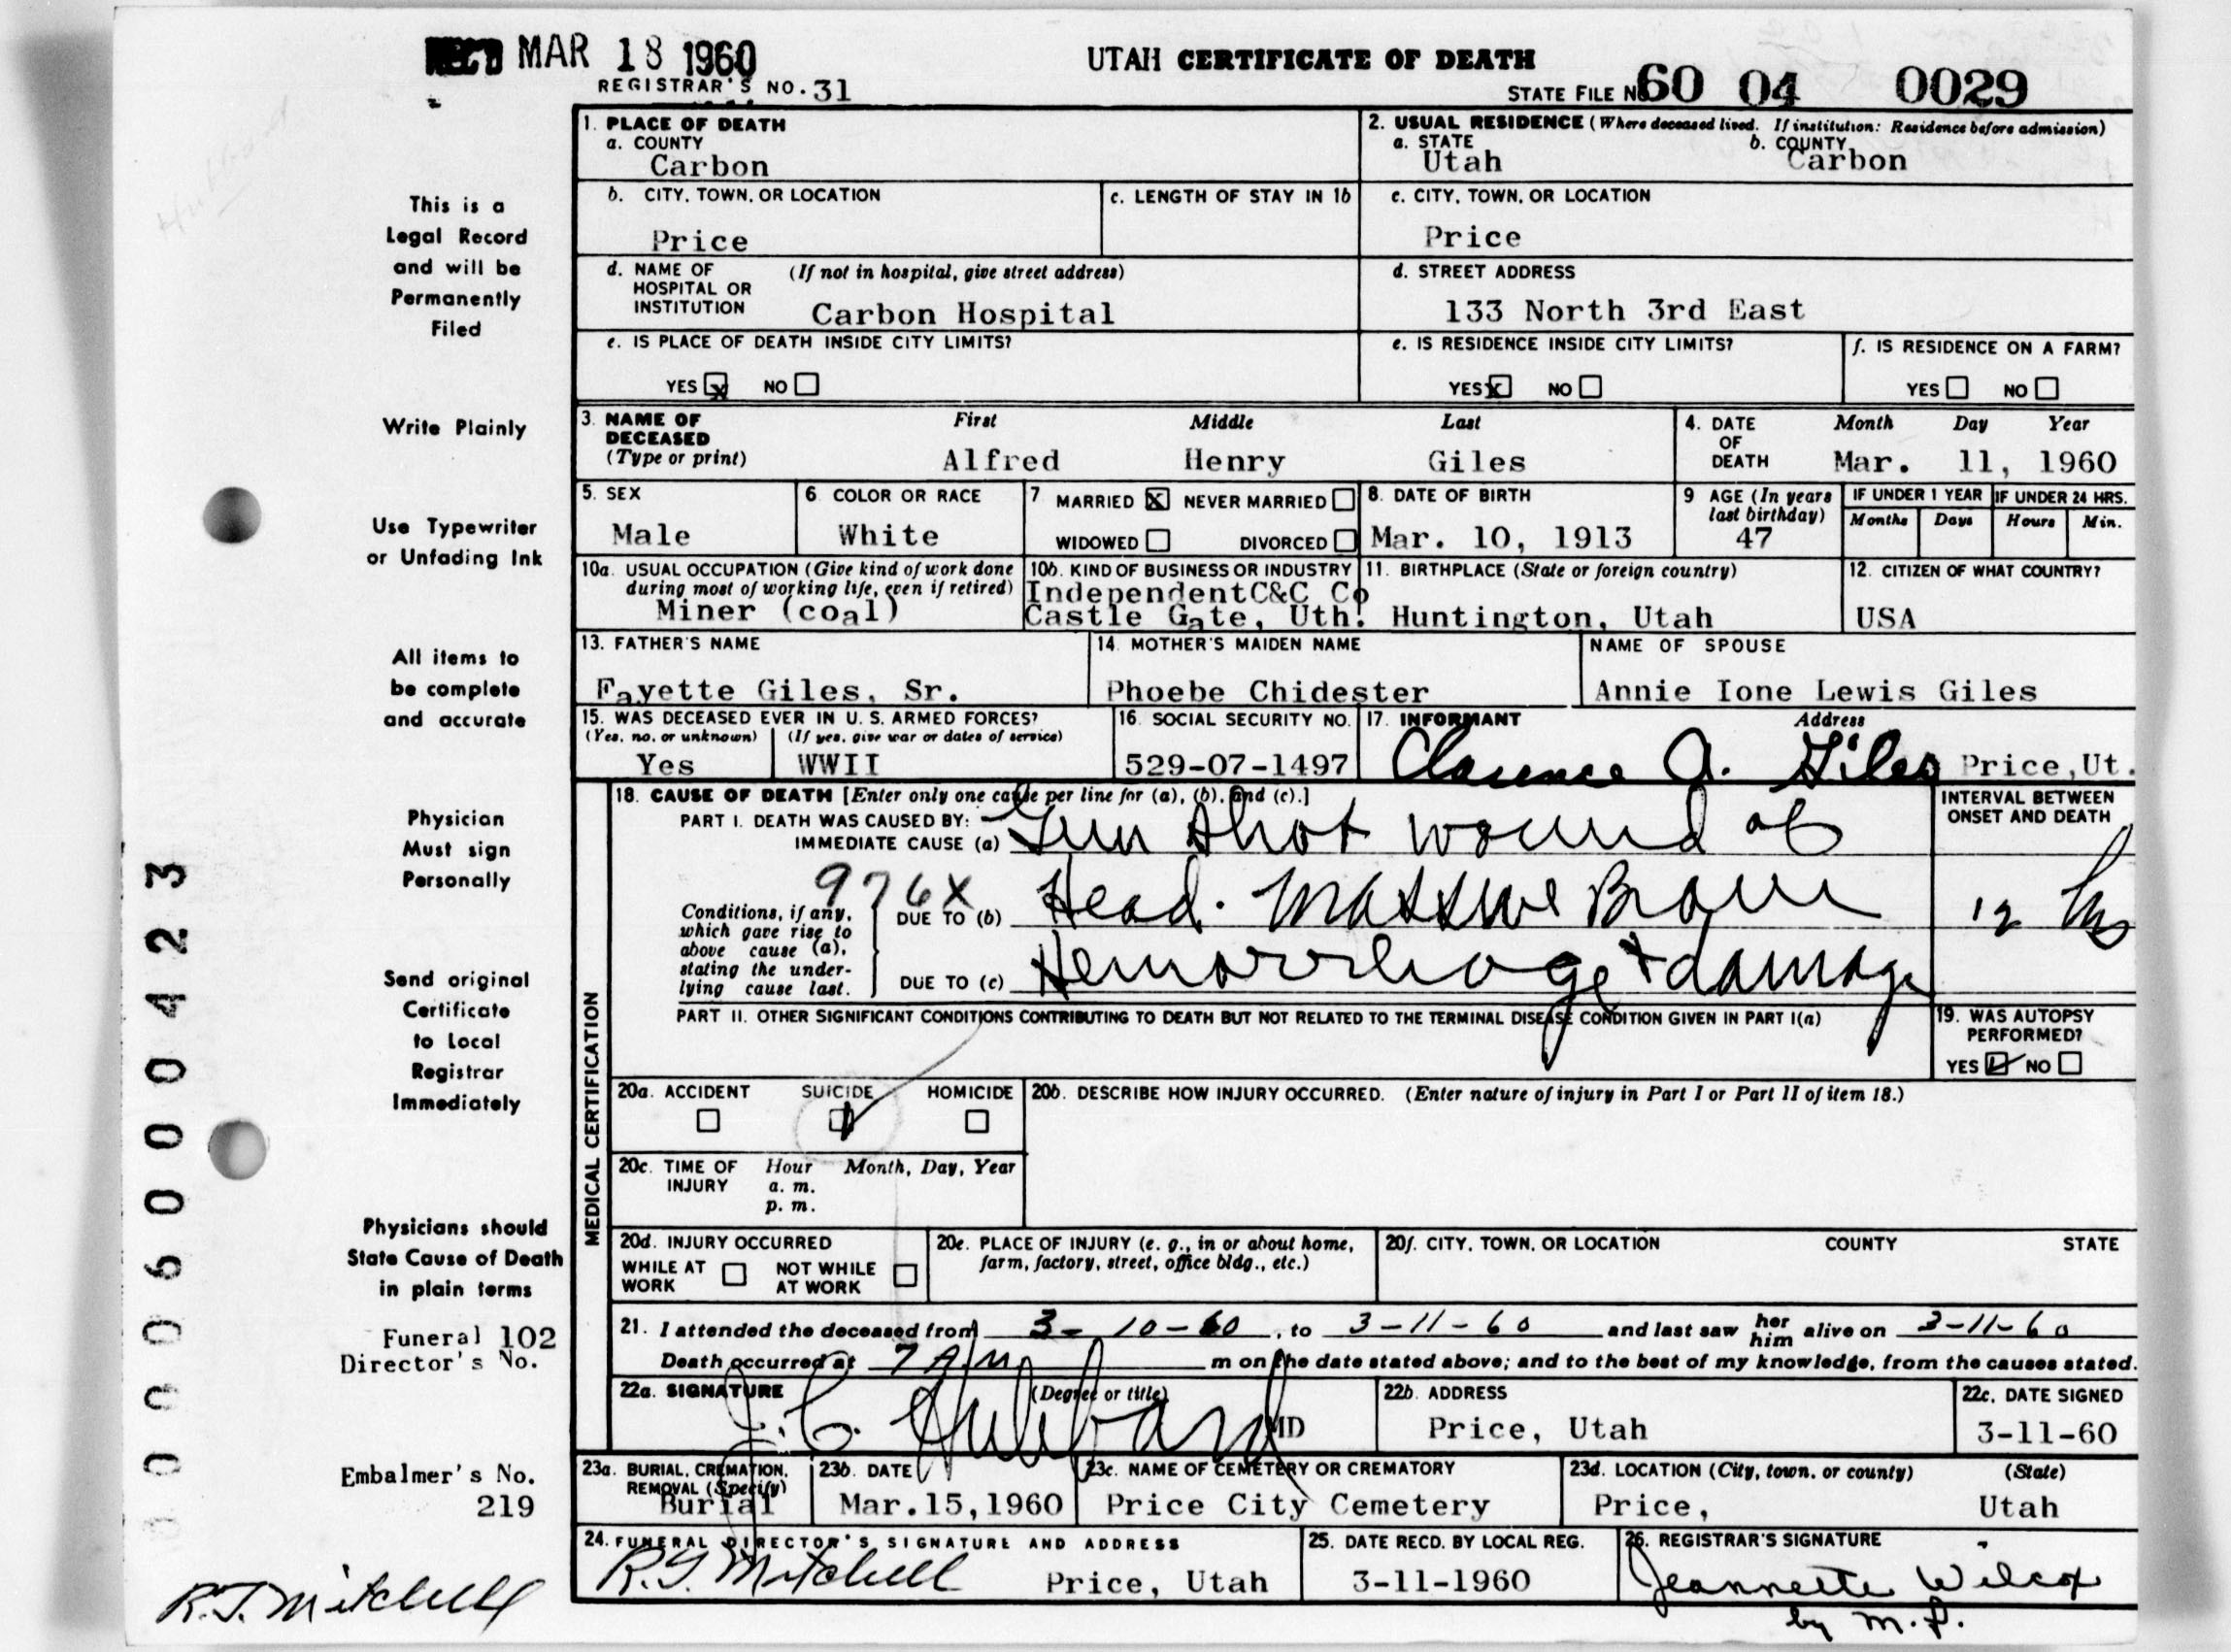 REC'D MAR 18 1960
UTAH CERTIFICATE OF DEATH
REGISTRAR'S NO. 31
STATE FILE NO. 60 04 0029
This is a
Legal Record
and will be
Permanently
Filed
Write Plainly
Use Typewriter
or Unfading Ink
All items to
be complete
and accurate
Physician
Must sign
Personally
Send original
Certificate
to Local
Registrar
Immediately
Physicians should
State Cause of Death
in plain terms
Funeral 102
Director's No.
Embalmer's No.
219
R.T. Mitchell
1. PLACE OF DEATH
a. COUNTY
Carbon
2. USUAL RESIDENCE (Where deceased lived. If institution: Residence before admission)
a. STATE b. COUNTY
Utah Carbon
b. CITY, TOWN, OR LOCATION
Price
c. LENGTH OF STAY IN 1b
c. CITY, TOWN, OR LOCATION
Price
d. NAME OF (If not in hospital, give street address)
HOSPITAL OR
INSTITUTION Carbon Hospital
d. STREET ADDRESS
133 North 3rd East
e. IS PLACE OF DEATH INSIDE CITY LIMITS?
YES X NO
e. IS RESIDENCE INSIDE CITY LIMITS?
YES X NO
f. IS RESIDENCE ON A FARM?
YES NO
3. NAME OF DECEASED (Type or print)
First Middle Last
Alfred Henry Giles
4. DATE OF DEATH
Month Day Year
Mar. 11, 1960
5. SEX
Male
6. COLOR OR RACE
White
7. MARRIED X NEVER MARRIED
WIDOWED DIVORCED
8. DATE OF BIRTH
Mar. 10, 1913
9 AGE (In years
last birthday)
47
IF UNDER 1 YEAR IF UNDER 24 HRS.
Months Days Hours Min.
10a. USUAL OCCUPATION (Give kind of work done
during most of working life, even if retired)
Miner (coal)
10b. KIND OF BUSINESS OR INDUSTRY
IndependentC&C Co
Castle Gate, Uth.
11. BIRTHPLACE (State or foreign country)
Huntington, Utah
12. CITIZEN OF WHAT COUNTRY?
USA
13. FATHER'S NAME
Fayette Giles, Sr.
14. MOTHER'S MAIDEN NAME
Phoebe Chidester
NAME OF SPOUSE
Annie Ione Lewis Giles
15. WAS DECEASED EVER IN U. S. ARMED FORCES?
(Yes, no, or unknown) (If yes, give war or dates of service)
Yes WWII
16. SOCIAL SECURITY NO.
529-07-1497
17. INFORMANT Address
Clarence A. Giles Price,Ut.
MEDICAL CERTIFICATION
18. CAUSE OF DEATH [Enter only one cause per line for (a), (b), and (c).]
PART I. DEATH WAS CAUSED BY:
IMMEDIATE CAUSE (a) Gun shot wound of
976X
Conditions, if any,
which gave rise to
above cause (a),
stating the under-
lying cause last.
DUE TO (b) Head. Massive Brain
DUE TO (c) Hemorrhage + damage
INTERVAL BETWEEN
ONSET AND DEATH
12 hrs
PART II. OTHER SIGNIFICANT CONDITIONS CONTRIBUTING TO DEATH BUT NOT RELATED TO THE TERMINAL DISEASE CONDITION GIVEN IN PART I(a)
19. WAS AUTOPSY
PERFORMED?
YES NO
20a. ACCIDENT SUICIDE HOMICIDE
20b. DESCRIBE HOW INJURY OCCURRED. (Enter nature of injury in Part I or Part II of item 18.)
20c. TIME OF INJURY
Hour Month, Day, Year
a. m.
p. m.
20d. INJURY OCCURRED
WHILE AT WORK NOT WHILE AT WORK
20e. PLACE OF INJURY (e. g., in or about home,
farm, factory, street, office bldg., etc.)
20f. CITY, TOWN, OR LOCATION COUNTY STATE
21. I attended the deceased from 3-10-60, to 3-11-60 and last saw her him alive on 3-11-60
Death occurred at 7 AM m on the date stated above; and to the best of my knowledge, from the causes stated.
22a. SIGNATURE (Degree or title)
J. C. Hubbard MD
22b. ADDRESS
Price, Utah
22c. DATE SIGNED
3-11-60
23a. BURIAL, CREMATION,
REMOVAL (Specify)
Burial
23b. DATE
Mar.15,1960
23c. NAME OF CEMETERY OR CREMATORY
Price City Cemetery
23d. LOCATION (City, town, or county) (State)
Price, Utah
24. FUNERAL DIRECTOR'S SIGNATURE AND ADDRESS
R.T. Mitchell Price, Utah
25. DATE RECD. BY LOCAL REG.
3-11-1960
26. REGISTRAR'S SIGNATURE
Jeannette Wilcox
by M.P.